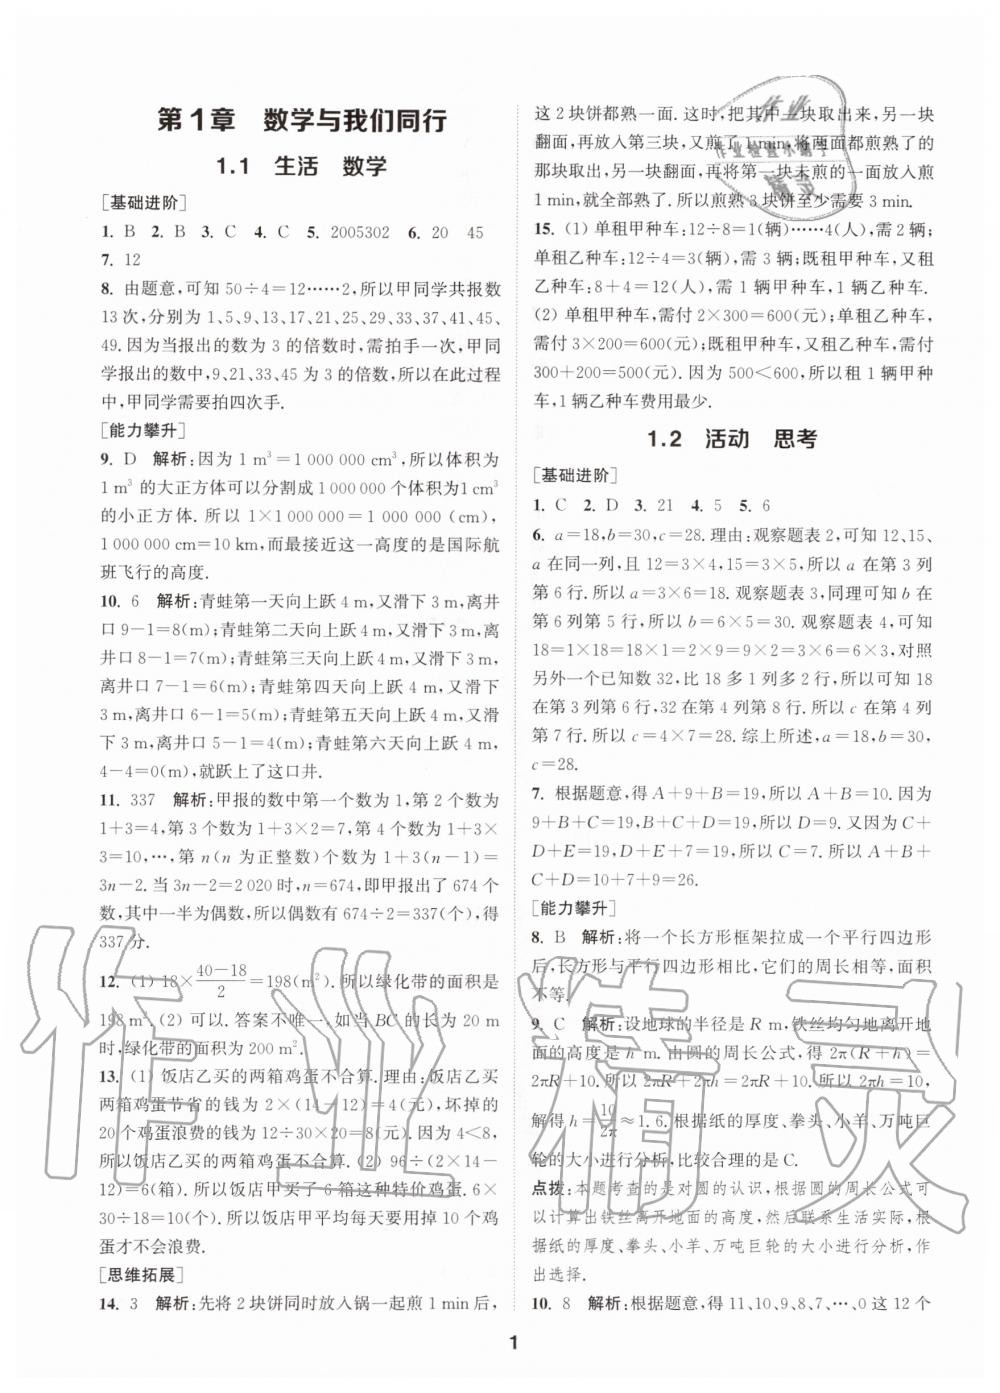 第1章 数学与我们同行
1.1 生活 数学
[基础进阶]
1. B 2. B 3. C 4. C 5. 2005302 6. 20 45
7. 12
8. 由题意,可知 50÷4=12……2,所以甲同学共报数
13次,分别为 1、5、9、13、17、21、25、29、33、37、41、45、
49. 因为当报出的数为 3 的倍数时,需拍手一次,甲同
学报出的数中,9、21、33、45 为 3 的倍数,所以在此过程
中,甲同学需要拍四次手.
[能力攀升]
9. D 解析:因为 1 m³=1 000 000 cm³,所以体积为
1 m³ 的大正方体可以分割成 1000000 个体积为1 cm³
的小正方体. 所以 1×1 000 000=1 000 000 (cm),
1 000 000 cm=10 km,而最接近这一高度的是国际航
班飞行的高度.
10. 6 解析:青蛙第一天向上跃 4 m,又滑下 3 m,离井
口 9-1=8(m);青蛙第二天向上跃 4 m,又滑下 3 m,离
井口 8-1=7(m);青蛙第三天向上跃 4 m,又滑下 3 m,
离井口 7-1=6(m);青蛙第四天向上跃 4 m,又滑下
3 m,离井口 6-1=5(m);青蛙第五天向上跃 4 m,又滑
下 3 m,离井口 5-1=4(m);青蛙第六天向上跃 4 m,
4-4=0(m),就跃上了这口井.
11. 337 解析:甲报的数中第一个数为 1,第 2 个数为
1+3=4,第 3 个数为 1+3×2=7,第 4 个数为 1+3×
3=10,…,第 n(n 为正整数)个数为 1+3(n-1)=
3n-2. 当 3n-2=2 020 时,n=674,即甲报出了 674 个
数,其中一半为偶数,所以偶数有 674÷2=337(个),得
337 分.
12. (1) 18×(40-18)/2=198(m²). 所以绿化带的面积是
198 m². (2) 可以. 答案不唯一,如当 BC 的长为 20 m
时,绿化带的面积为 200 m².
13. (1) 饭店乙买的两箱鸡蛋不合算. 理由:饭店乙买
两箱鸡蛋节省的钱为 2×(14-12)=4(元),坏掉的
20 个鸡蛋浪费的钱为 12÷30×20=8(元). 因为 4<8,
所以饭店乙买的两箱鸡蛋不合算. (2) 96÷(2×14-
12)=6(箱). 所以饭店甲买了 6 箱这种特价鸡蛋. 6×
30÷18=10(个). 所以饭店甲平均每天要用掉 10 个鸡
蛋才不会浪费.
[思维拓展]
14. 3 解析:先将 2 块饼同时放入锅一起煎 1 min 后,
这 2 块饼都熟一面. 这时,把其中一块取出来,另一块
翻面,再放入第三块,又煎了 1 min,将两面都煎熟了的
那块取出,另一块翻面,再将第一块未煎的一面放入煎
1 min,就全部熟了. 所以煎熟 3 块饼至少需要 3 min.
15. (1) 单租甲种车:12÷8=1(辆)……4(人),需 2 辆;
单租乙种车:12÷4=3(辆),需 3 辆;既租甲种车,又租
乙种车:8+4=12(人),需 1 辆甲种车,1 辆乙种车.
(2) 单租甲种车,需付 2×300=600(元);单租乙种车,
需付 3×200=600(元);既租甲种车,又租乙种车,需付
300+200=500(元). 因为 500<600,所以租 1 辆甲种
车,1 辆乙种车费用最少.
1.2 活动 思考
[基础进阶]
1. C 2. D 3. 21 4. 5 5. 6
6. a=18,b=30,c=28. 理由:观察题表 2,可知 12、15、
a 在同一列,且 12=3×4,15=3×5,所以 a 在第 3 列
第 6 行. 所以 a=3×6=18. 观察题表 3,可知 b 在第
6 列第 5 行,所以 b=6×5=30. 观察题表 4,可知
18=1×18=18×1=2×9=9×2=3×6=6×3,对照
另外一个已知数 32,比 18 多 1 列多 2 行,所以可知 18
在第 3 列第 6 行,32 在第 4 列第 8 行. 所以 c 在第 4 列
第 7 行. 所以 c=4×7=28. 综上所述,a=18,b=30,
c=28.
7. 根据题意,得 A+9+B=19,所以 A+B=10. 因为
9+B+C=19,B+C+D=19,所以 D=9. 又因为 C+
D+E=19,D+E+7=19,所以 C=7. 所以 A+B+
C+D=10+7+9=26.
[能力攀升]
8. B 解析:将一个长方形框架拉成一个平行四边形
后,长方形与平行四边形相比,它们的周长相等,面积
不等.
9. C 解析:设地球的半径是 R m,铁丝均匀地离开地
面的高度是 h m. 由圆的周长公式,得 2π(R+h)=
2πR+10. 所以 2πR+2πh=2πR+10. 所以 2πh=10,
解得 h=10/2π≈1.6. 根据纸的厚度、拳头、小羊、万吨巨
轮的大小进行分析,比较合理的是 C.
点拨:本题考查的是对圆的认识,根据圆的周长公式可
以计算出铁丝离开地面的高度,然后联系生活实际,根
据纸的厚度、拳头、小羊、万吨巨轮的大小进行分析,作
出选择.
10. 8 解析:根据题意,得 11、10、9、8、7、…、0 这 12 个
1
作业
作业检查小帮手
精灵
作业精灵